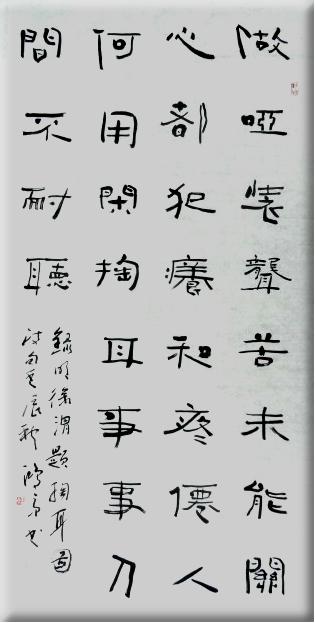 做啞裝聾苦未能關
心都犯癢和疼僊人
何用閑掏耳事事人
間不耐聽
錄明徐渭題掏耳圖
詩句辰秋書